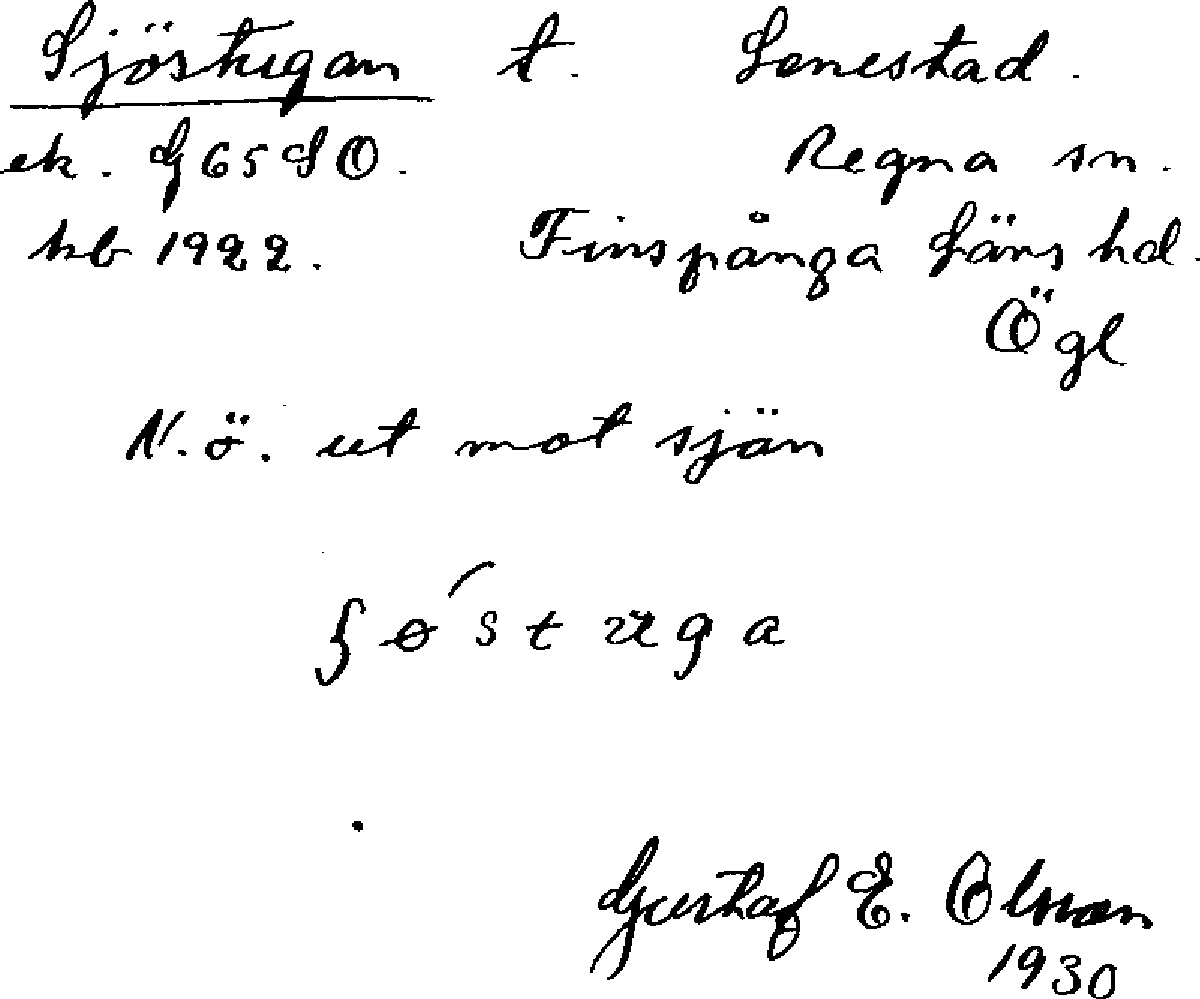 Sjöstugan t. Lenestad.
ek. G 65 SO. Regna sn.
hb 1922. Finspånga Läns hd.
Ögl
N.ö. ut mot sjön
ʃ ø ́ s t u g a
Gustaf E. Olsson
1930